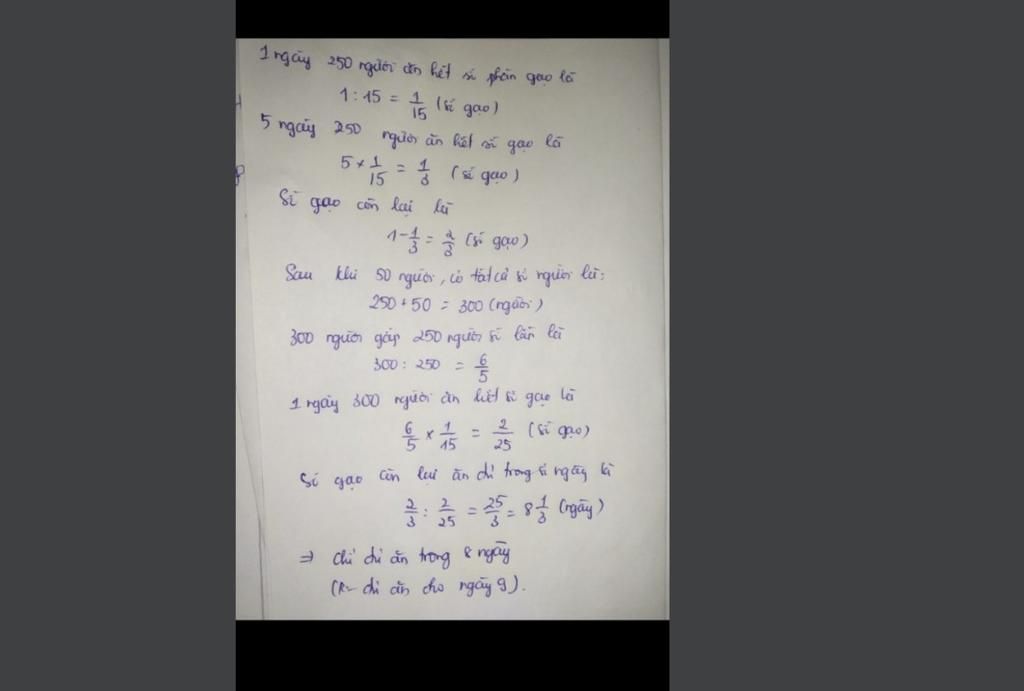 1 ngày 250 người ăn hết số phần gạo là
1 : 15 = 1/15 (số gạo)
5 ngày 250 người ăn hết số gạo là
5 × 1/15 = 1/3 (số gạo)
Số gạo còn lại là
1 - 1/3 = 2/3 (số gạo)
Sau khi 50 người, có tất cả số người là:
250 + 50 = 300 (người)
300 người gấp 250 người số lần là
300 : 250 = 6/5
1 ngày 300 người ăn hết số gạo là
6/5 × 1/15 = 2/25 (số gạo)
Số gạo còn lại ăn đủ trong số ngày là
2/3 : 2/25 = 25/3 = 8 1/3 (ngày)
⇒ Chỉ đủ ăn trong 8 ngày
đủ ăn cho ngày 9).